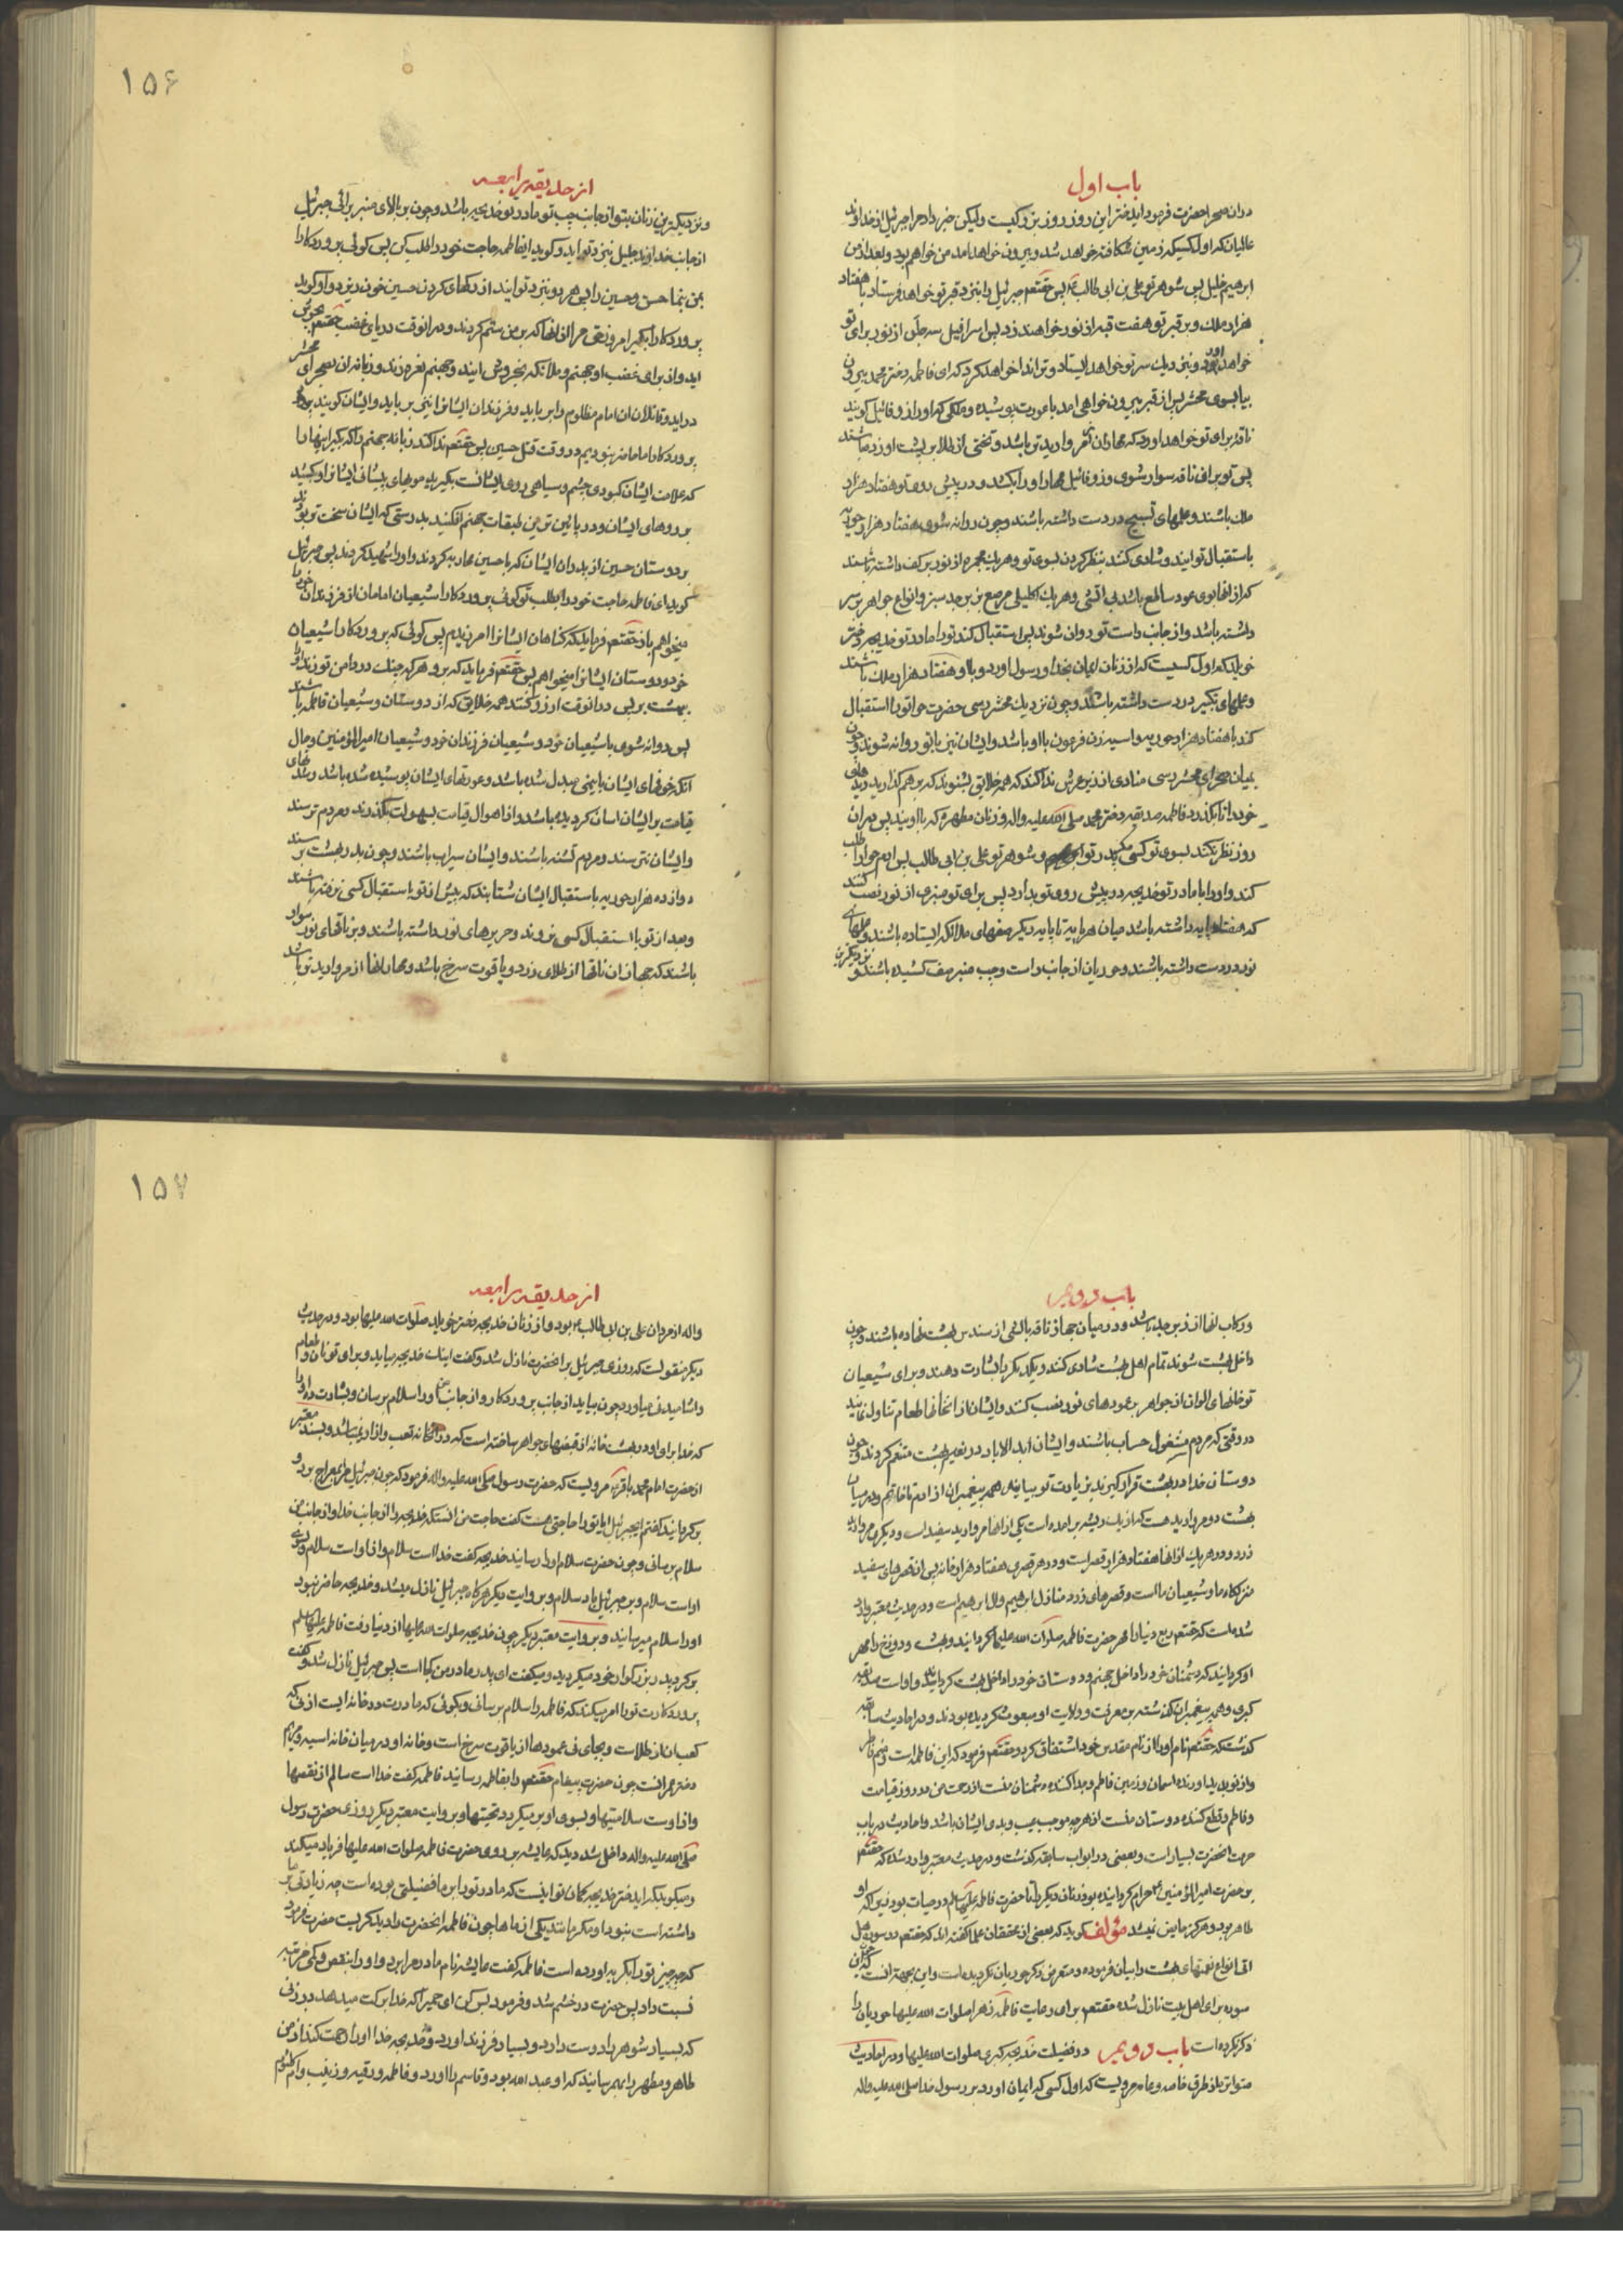 باب اول
دران صحرا حضرت فرمود ایدختر این روز روز بزرکیست ولیکن خبر داد مرا جبرئیل از خداوند
عالمیان که اول کسیکه زمین شکافته خواهد شد و بیرون خواهد امد من خواهم بود و بعد از من
ابرهیم خلیل پس شوهر تو علی بن ابی طالب پس حقتعم جبرئیل را بنزد قبر تو خواهد فرستاد با هفتاد
هزار ملک و بر قبر تو هفت قبه از نور خواهند زد پس اسرافیل سه حله از نور برای تو
خواهد اورد و بنزدیک سر تو خواهد ایستاد و ترا ندا خواهد کرد که ای فاطمه دختر محمد بیرون
بیا بسوی محشر پس از قبر بیرون خواهی امد با عورت پوشیده و ملکی که او را زوقائیل کویند
ناقه برای تو خواهد اورد که مهار ان از مروارید تر باشد و تختی از طلا بر پشت او زده باشند
پس تو بر ان ناقه سوار شوی و زوقائیل مهار او را بکشد و در پیش روی تو هفتاد هزار
ملک باشند و علمهای تسبیح در دست داشته باشند و چون روانه شوی هفتاد هزار حوریه
باستقبال تو ایند و شادی کنند بنظر کردن بسوی تو و هر یک مجمره از نور بر کف داشته باشند
که از انها بوی عود ساطع باشد بی اتشی و هر یک اکلیلی مرصع بزبرجد سبز و انواع جواهر بر سر
داشته باشد و از جانب راست تو روان شوند پس استقبال کند تو را مادر تو خدیجه دختر
خویلد که اول کسیست که از زنان ایمان بخدا و رسول اورد و با او هفتاد هزار ملک باشند
و علمهای تکبیر در دست داشته باشند و چون نزدیک محشر رسی حضرت حوا تو را استقبال
کند با هفتاد هزار حوریه و اسیه زن فرعون با او باشد و ایشان نیز با تو روانه شوند و چون
بمیان صحرای محشر رسی منادی از زیر عرش ندا کند که همه خلایق بشنوند که بر هم گذارید دیدهای
خود را تا بگذرد فاطمه صدیقه دختر محمد صلی الله علیه واله و زنان مطهره که با اویند پس دران
روز نظر نکند بسوی تو کسی مکر پدر تو و شوهر تو علی بن ابی طالب پس ادم حوا را طلب
کند و او را با مادر تو خدیجه در پیش روی تو بدارد پس برای تو منبری از نور نصب کنند
که هفتاد پایه داشته باشد میان هر پایه تا پایه دیکر صفهای ملائکه ایستاده باشند و علمهای
نور در دست داشته باشند و حوریان از جانب راست و چپ منبر صف کشیده باشند
۱۵۶
از حدیقه رابعه
و نزدیکترین زنان بتو از جانب چپ تو مادر تو خدیجه باشد و چون بر بالای منبر برائی جبرئیل
از جانب خداوند جلیل بنزد تو اید و کوید ایفاطمه حاجت خود را طلب کن پس کوئی پروردکارا
بمن بنما حسن و حسین را پس هر دو بنزد تو ایند از رکهای کردن حسین خون ریزد و او کوید
پروردکارا بگیر امروز حق مرا از انها که بر من ستم کردند و در انوقت دریای غضب حقتعم بجوش
اید و از برای غضب او جهنم و ملائکه بخروش ایند و جهنم نعره زند و زبانه ان بصحرای محشر
دراید و قاتلان ان امام مظلوم را برباید و فرزندان ایشانرا نیز برباید و ایشان کویند
پروردکارا ما حاضر نبودیم در وقت قتل حسین پس حقتعم ندا کند زبانه جهنم را که بگیر اینها را
که علامت ایشان کبودی چشم و سیاهی روی ایشانست بگیرید مویهای پیشانی ایشانرا و بکشید
بر روهای ایشان و در پائین ترین طبقات جهنم افکنید بدرستی که ایشان سخت تر بودند
بر دوستان حسین از پدران ایشان که با حسین محاربه کردند و او را شهید کردند پس جبرئیل
کوید ای فاطمه حاجت خود را بطلب تو کوئی پروردکارا شیعیان امامان از فرزندان خود را
میخواهم باز حقتعم فرماید که کناهان ایشانرا امرزیدم پس کوئی که پروردکارا شیعیان
خود و دوستان ایشانرا میخواهم پس حقتعم فرماید که برو هر که چنک در دامن تو زند او را
بهشت بر پس در انوقت ارزو کنند همه خلایق که از دوستان و شیعیان فاطمه باشند
پس روانه شوی با شیعیان خود و شیعیان فرزندان خود و شیعیان امیرالمؤمنین در حال
انکه خوفهای ایشان بایمنی مبدل شده باشد و عورتهای ایشان پوشیده شده باشد و شدتهای
قیامت بر ایشان اسان کردیده باشد و از اهوال قیامت بسهولت بگذرند و مردم ترسند
و ایشان نترسند و مردم تشنه باشند و ایشان سیراب باشند و چون بدر بهشت برسند
دوازده هزار حوریه باستقبال ایشان شتابند که پیش از تو باستقبال کسی نرفته باشند
و بعد از تو باستقبال کسی نروند و حربهای نور داشته باشند و بر ناقهای نور سوار
باشند که جهاز ان ناقها از طلای زرد و یاقوت سرخ باشد و مهار انها از مروارید تر باشد
باب دویم
و رکاب انها از زبرجد باشد و در میان جهاز ناقه بالشی از سندس بهشت نهاده باشند و چون
داخل بهشت شوند تمام اهل بهشت شادی کنند و یکدیکر را بشارت دهند و برای شیعیان
تو خانهای الوان از جواهر بر عمودهای نور نصب کنند و ایشان از انخانها طعام تناول نمایند
در وقتی که مردم مشغول حساب باشند و ایشان ابد الاباد در نعیم بهشت متنعم کردند و چون
دوستان خدا در بهشت قرار گیرند بزیارت تو بیایند همه پیغمبران از ادم تا خاتم و در میان
بهشت دو مروارید هست که از یک ریشه بر امده است یکی از انها مروارید سفید است و دیکری مروارید
زرد و در هر یک از انها هفتاد هزار قصر است و در هر قصری هفتاد هزار خانه پس ان قصرهای سفید
منزلکاه ما و شیعیان ما است و قصرهای زرد منازل ابراهیم و ال ابرهیم است و در حدیث معتبر وارد
شده است که حقتعم ربع دنیا را مهر حضرت فاطمه صلوات الله علیها کردانید و بهشت و دوزخ را مهر
او کردانید که دشمنان خود را داخل جهنم و دوستان خود را داخل بهشت کرداند و او است صدیقه
کبری و همه پیغمبران گذشته بر معرفت و ولایت او مبعوث کردیده بودند و در احادیث سابقه
گذشت که حقتعم نام او را از نام مقدس خود اشتقاق کرد و حقتعم فرمود که این فاطمه است و منم فاطر
و از نو پدید اورنده اسمان و زمین فاطم و جدا کننده دشمنان منست از رحمت من در روز قیامت
و فاطم و قطع کننده دوستان منست از هرچه موجب عیب و بدی ایشان باشد و احادیث در باب
حرمت انحضرت بسیار است و بعضی در ابواب سابقه گذشت و در حدیث معتبر وارد شده که حقتعم
بر حضرت امیرالمؤمنین حرام کردانیده بود زنان دیکر را تا حضرت فاطمه علیها السلام در حیات بود زیرا که او
طاهر بود و هرکز حایض نمیشد مؤلف کوید که بعضی از محققان علما گفته اند که حقتعم در سوره هل
اتی انواع نعمتهای بهشت را بیان فرموده و متعرض ذکر حوریان نکردیده است و این بجهة انست که این
سوره برای اهل بیت نازل شده حقتعم برای رعایت فاطمه زهرا صلوات الله علیها حوریان را
ذکر نکرده است باب دویم در فضیلت خدیجه کبری صلوات الله علیها و در احادیث
متواتره از طرق خاصه و عامه مرویست که اول کسی که ایمان اورد بر رسول خدا صلی الله علیه واله
۱۵۷
از حدیقه رابعه
واله از مردان علی بن ابی طالب بود و از زنان خدیجه دختر خویلد صلوات الله علیها بود و در حدیث
دیکر منقولست که روزی جبرئیل بر انحضرت نازل شد و گفت اینک خدیجه میاید و برای تو نان و طعام
و اشامیدنی میاورد چون بیاید از جانب پروردکار و از جانب من او را سلام برسان و بشارت ده او را
که خدا برای او در بهشت خانه از قصبهای جواهر ساخته است که در انخانه تعب و ازار نمیباشد و بسند معتبر
از حضرت امام محمد باقر مرویست که حضرت رسول صلی الله علیه واله فرمود که چون جبرئیل مرا بمعراج برد و
برکردانید گفتم ایجبرئیل ایا تو را حاجتی هست گفت حاجت من انستکه خدیجه را از جانب خدا و از جانب من
سلام برسانی و چون حضرت سلام او را رسانید خدیجه گفت خدا است سلام و از او است سلام و بسوی
او است سلام و بر جبرئیل باد سلام و بروایت دیکر هرکاه جبرئیل نازل میشد و خدیجه حاضر نبود
او را سلام میرسانید و بروایت معتبر دیکر چون خدیجه صلوات الله علیها از دنیا رفت فاطمه علیها السلم
بر کرد پدر بزرکوار خود میکردید و میکفت ای پدر مادر من کجا است پس جبرئیل نازل شد و گفت
پروردکارت تو را امر میکند که فاطمه را سلام برسانی و بکوئی که مادرت در خانه ایست از نی که
کعب ان از طلاست و بجای نی عمودها از یاقوت سرخ است و خانه او در میان خانه اسیه و مریم
دختر عمرانست چون حضرت پیغام حقتعم را بفاطمه رسانید فاطمه گفت خدا است سالم از نقصها
و از اوست سلامتیها و بسوی او بر میکردد تحیتها و بروایت معتبر دیکر روزی حضرت رسول
صلی الله علیه واله داخل شد دید که عایشه بر روی حضرت فاطمه صلوات الله علیها فریاد میکند
و میکوید که ایدختر خدیجه کمان تو اینست که مادر تو را بر ما فضیلتی بوده است چه زیادتی بر ما
داشته است نبود او مکر مانند یکی از ماها چون فاطمه انحضرت را دید کریست حضرت فرمود
که چه چیز تو را بکریه اورده است فاطمه گفت عایشه نام مادر مرا برد و او را بنقص و کمی مرتبه
نسبت داد پس حضرت در خشم شد و فرمود بس کن ای حمیرا که خدا برکت میدهد در زنی
که بسیار شوهر را دوست دارد و بسیار فرزند اورد و خدیجه خدا او را رحمت کند از من
طاهر و مطهر را بهم رسانید که او عبد الله بود و قاسم را اورد و فاطمه و رقیه و زینب و ام کلثوم